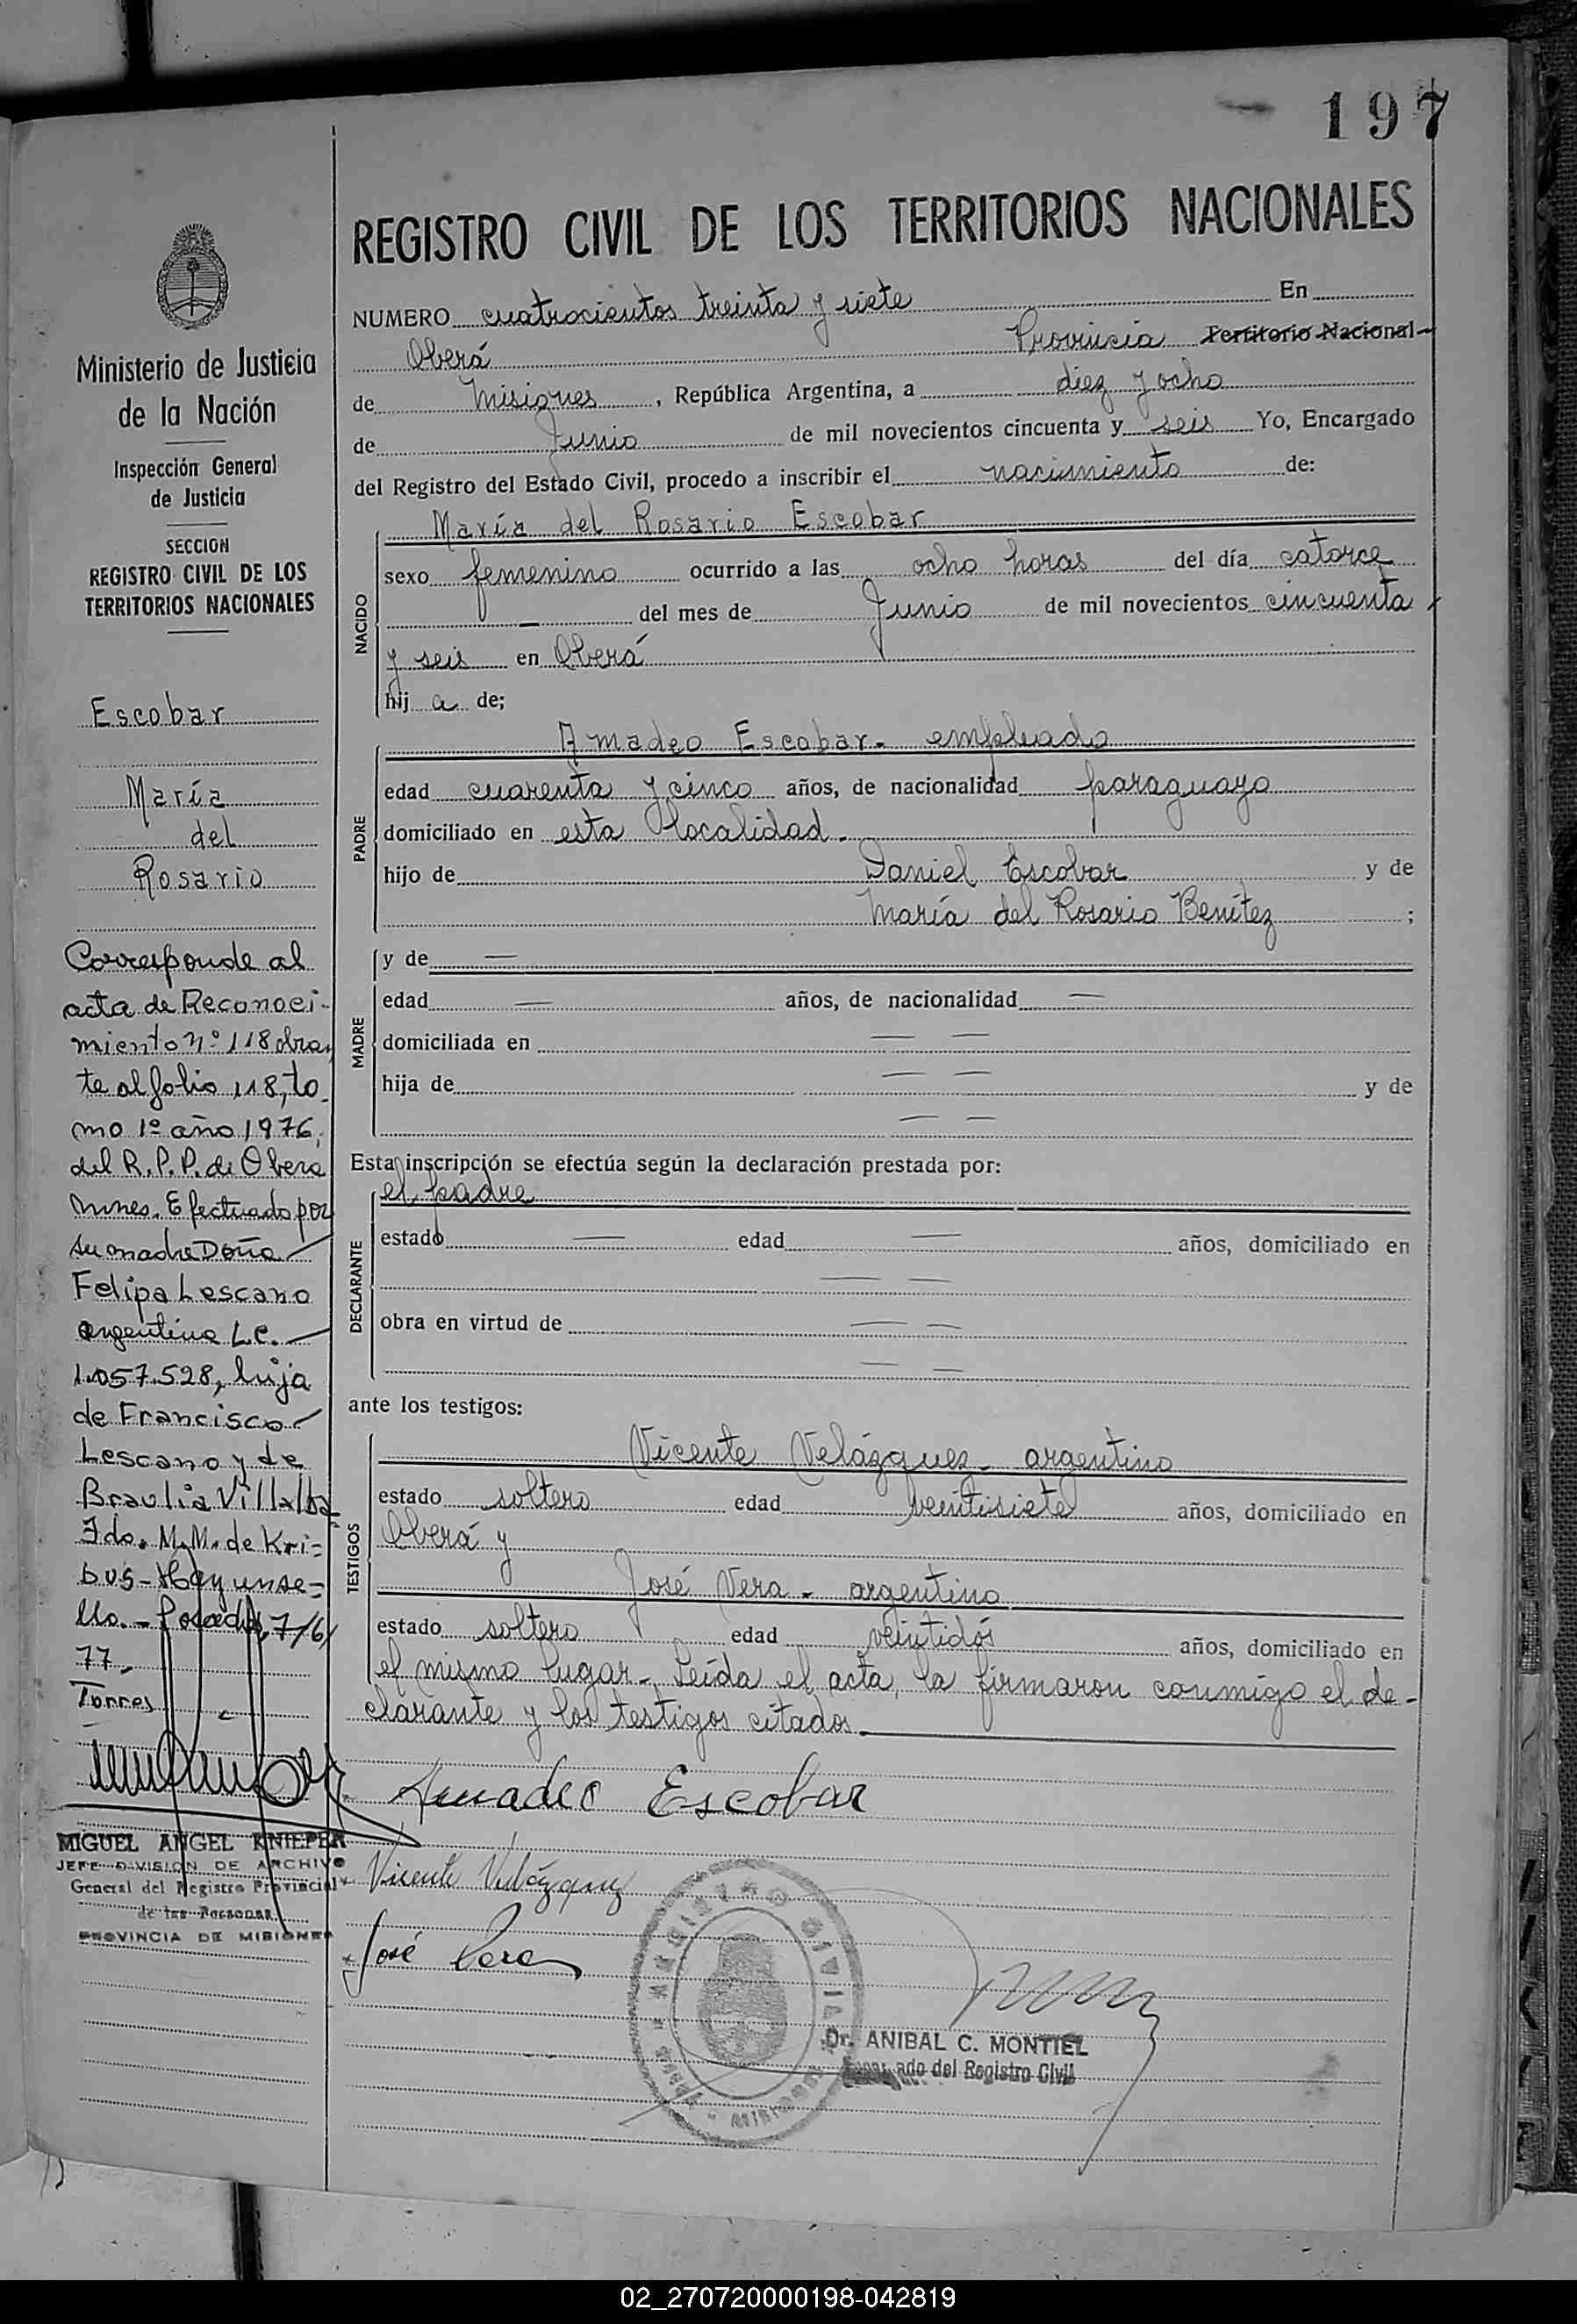 197
REGISTRO CIVIL DE LOS TERRITORIOS NACIONALES
Ministerio de Justicia
de la Nación
Inspección General
de Justicia
SECCION
REGISTRO CIVIL DE LOS
TERRITORIOS NACIONALES
Escobar
María
del
Rosario
Corresponde al
acta de Reconoci-
miento nº 118 obran
te al folio 118, to
mo 1º año 1976,
del R.P.P. de Oberá
Mnes. Efectuado por
su madre Doña
Felipa Lescano
argentina L.C.
1.057.528, hija
de Francisco
Lescano y de
Braulia Villalba
Fdo. M.M. de Kri=
bus - Hay un se=
llo. - Posadas, 7/6/
77.
Torres
MIGUEL ANGEL KNIEPER
JEFE DIVISION DE ARCHIVO
General del Registro Provincial
de las Personas
PROVINCIA DE MISIONES
NUMERO cuatrocientos treinta y siete En
Oberá Provincia Territorio Nacional
de Misiones, República Argentina, a diez y ocho
de Junio de mil novecientos cincuenta y seis Yo, Encargado
del Registro del Estado Civil, procedo a inscribir el nacimiento de:
NACIDO
María del Rosario Escobar
sexo femenino ocurrido a las ocho horas del día catorce
— del mes de Junio de mil novecientos cincuenta
y seis en Oberá
hij a de;
PADRE
Amadeo Escobar - empleado
edad cuarenta y cinco años, de nacionalidad paraguayo
domiciliado en esta localidad.
hijo de Daniel Escobar y de
María del Rosario Benítez ;
MADRE
y de —
edad — años, de nacionalidad —
domiciliada en — —
hija de — — y de
— —
Esta inscripción se efectúa según la declaración prestada por:
DECLARANTE
el padre
estado — edad — años, domiciliado en
— —
obra en virtud de — —
— —
ante los testigos:
TESTIGOS
Vicente Velázquez - argentino
estado soltero edad veintisiete años, domiciliado en
Oberá y
José Vera - argentino
estado soltero edad veintidós años, domiciliado en
el mismo lugar - Leída el acta, la firmaron conmigo el de-
clarante y los testigos citados.
Amadeo Escobar
Vicente Velázquez
José Vera
REGISTRO CIVIL
Dr. ANIBAL C. MONTIEL
Encargado del Registro Civil
02_270720000198-042819